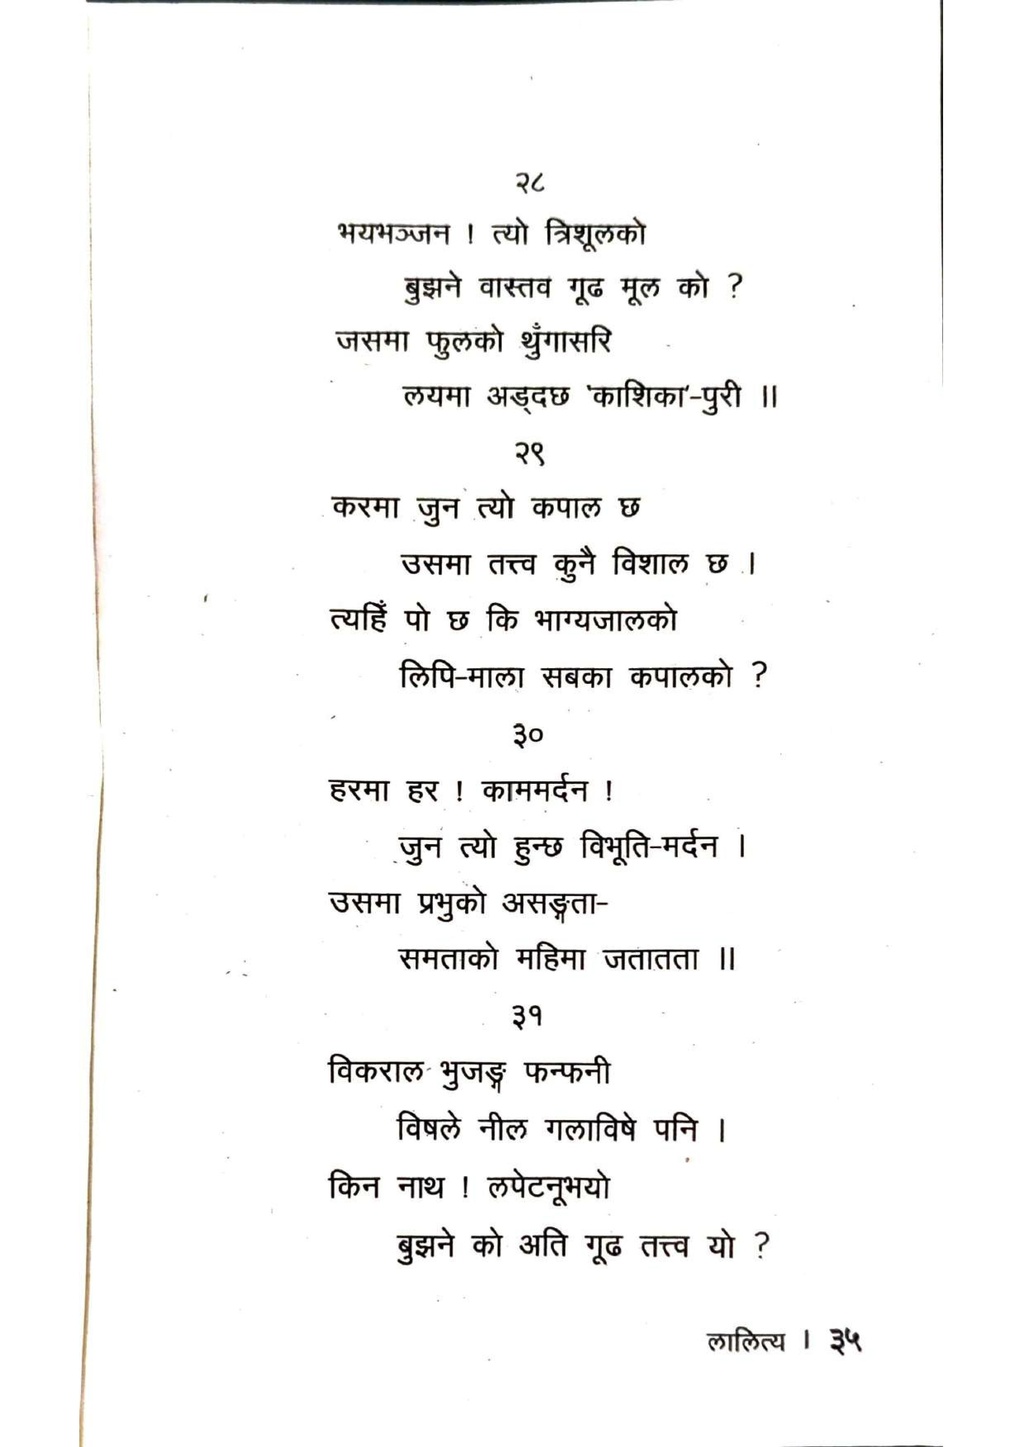 २८
भयभञ्जन ! त्यो त्रिशूलको
बुझने वास्तव गूढ मूल को ?
जसमा फुलको थुँगासरि
लयमा अड्दछ 'काशिका'-पुरी ॥
२९
करमा जुन त्यो कपाल छ
उसमा तत्त्व कुनै विशाल छ ।
त्यहिँ पो छ कि भाग्यजालको
लिपि-माला सबका कपालको ?
३०
हरमा हर ! काममर्दन !
जुन त्यो हुन्छ विभूति-मर्दन ।
उसमा प्रभुको असङ्गता-
समताको महिमा जतातता ॥
३१
विकराल भुजङ्ग फन्फनी
विषले नील गलाविषे पनि ।
किन नाथ ! लपेटनूभयो
बुझने को अति गूढ तत्त्व यो ?
लालित्य । ३५